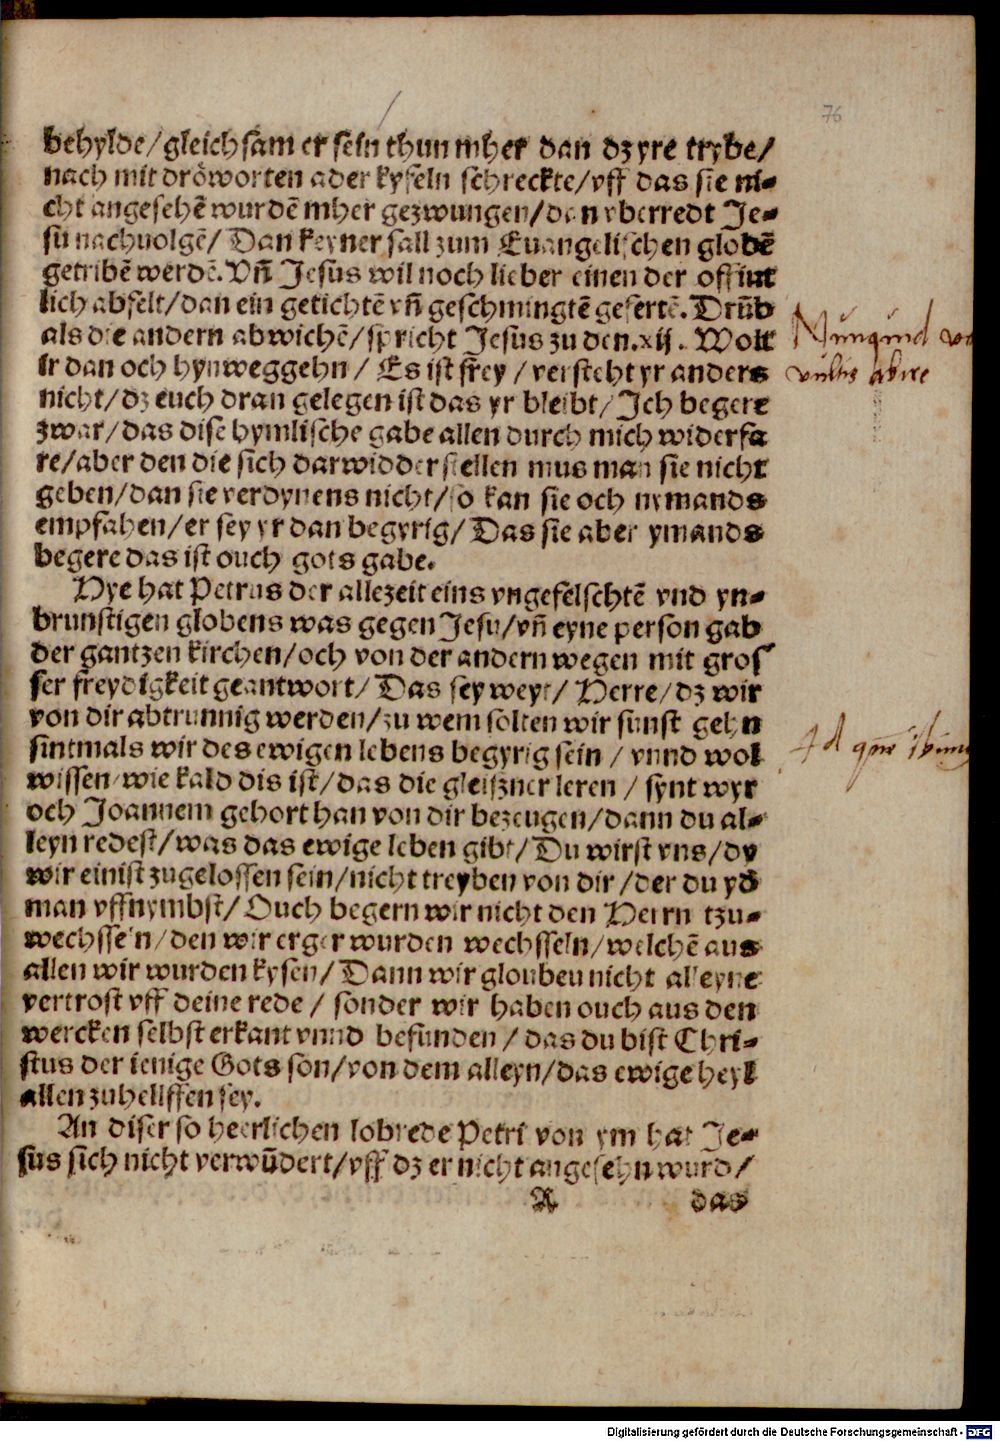 76
behylde/gleichsam er seln thun mher dan dz yre trybe/
nach mit drőworten ader kyfeln schreckte/vff das sie ni-
cht angesehē wurdē mher gezwungen/dan vberredt Je-
su nachuolgē/Dan keyner sall zum Euangelischen globē
getribē werdē. Vñ Jesus wil noch lieber einen der offint
lich abfelt/dan ein getichtē vñ geschmingtē gefertē. Drūb
als die andern abwichē/spricht Jesus zu den .xij. Wolt
ir dan och hynweggehn/Es ist frey/versteht yr anders
nicht/dz euch dran gelegen ist das yr bleibt/Ich begere
zwar/das dise hymlische gabe allen durch mich widerfa
re/aber den die sich darwidder stellen mus man sie nicht
geben/dan sie verdynens nicht/so kan sie och nymands
empfahen/er sey yr dan begyrig/Das sie aber ymands
begere das ist ouch gots gabe.
Hye hat Petrus der allezeit eins vngefelschtē vnd yn-
brunstigen globens was gegen Jesu/vñ eyne person gab
der gantzen kirchen/och von der andern wegen mit gros
ser freydigkeit geantwort/Das sey weyt/Herre/dz wir
von dir abtrunnig werden/zu wem solten wir sunst gehn
sintmals wir des ewigen lebens begyrig sein/vnnd wol
wissen wie kald dis ist/das die gleißner leren/synt wyr
och Joannem gehort han von dir bezeugen/dann du al-
leyn redest/was das ewige leben gibt/Du wirst vns/dy
wir einist zugelossen sein/nicht treyben von dir/der du yd
man vffnymbst/Ouch begern wir nicht den Herrn tzu-
wechsseln/den wir erger wurden wechsseln/welchē aus
allen wir wurden kysen/Dann wir gloubeu nicht alleyne
vertrost vff deine rede/sonder wir haben ouch aus den
wercken selbst erkant vnnd befunden/das du bist Chri-
stus der ienige Gots son/von dem alleyn/das ewige heyl
allen zuheliffen sey.
An diser so heerlichen lobrede Petri von ym hat Je-
sus sich nicht verwūdert/vff dz er nicht angesehn wurd/
A das
Nunquid vo
vultis abire
Ad quē ibimus
Digitalisierung gefördert durch die Deutsche Forschungsgemeinschaft - DFG